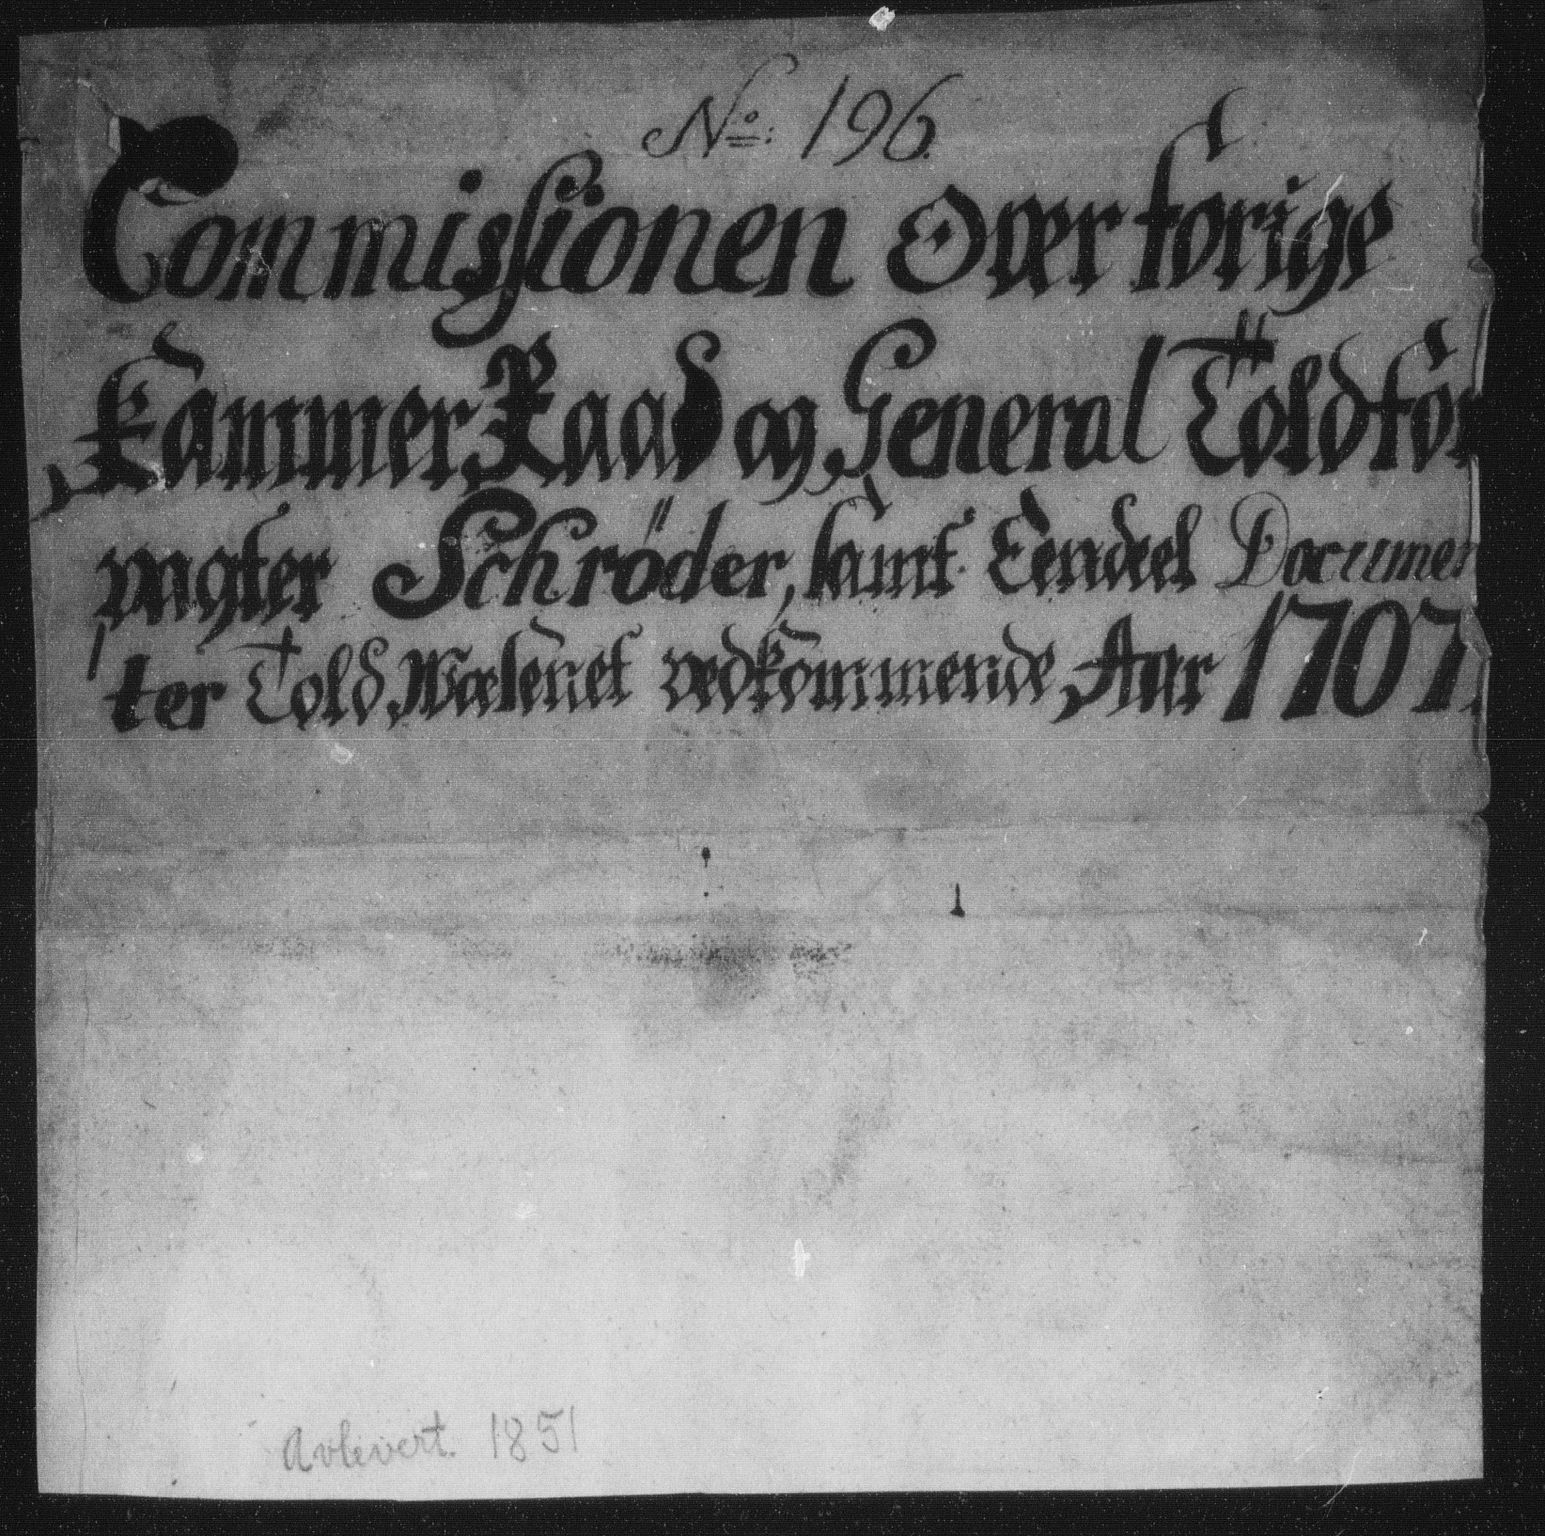 No: 196.
Commissionen Over forige
Kammer Raad og General Toldfor
vagter Schrøder, samt Eendeel Documen
ter Told Wæsenet vedkommende, Aar 1707.
Avlevert. 1851